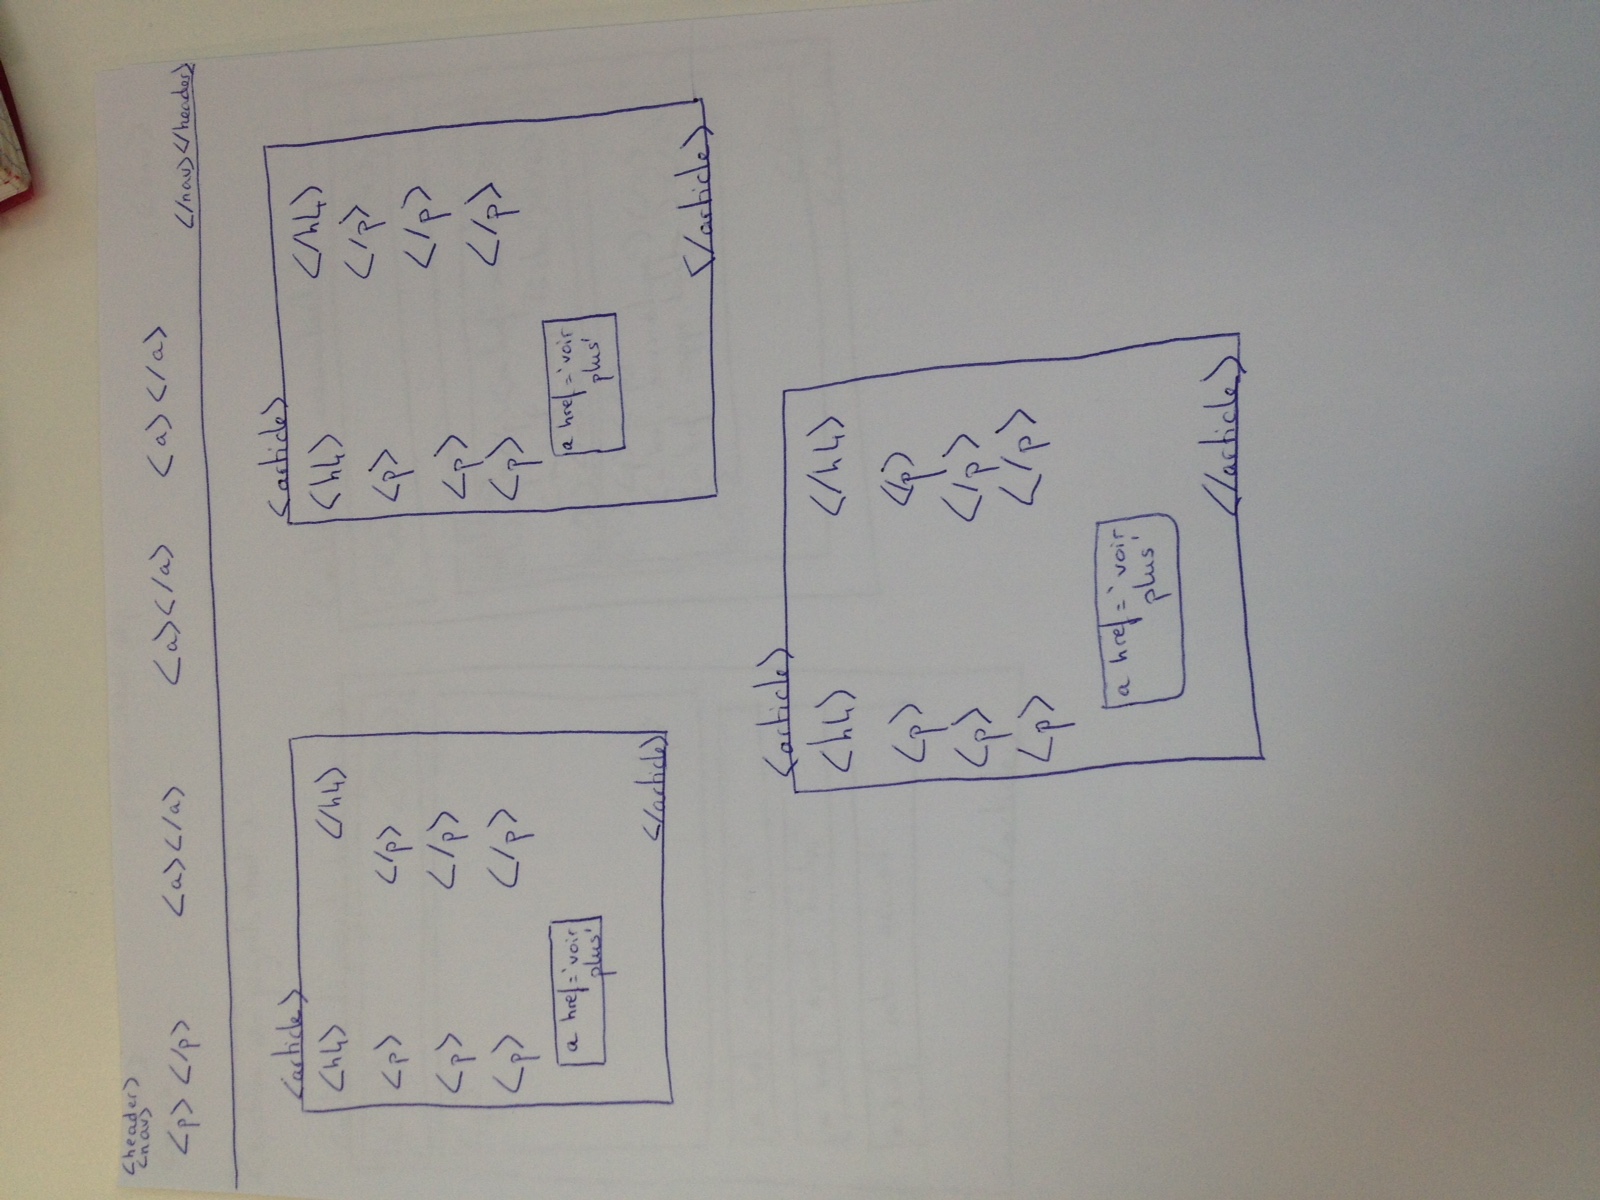 <header>
<nav>
<p> </p> <a></a> <a></a> <a></a> </nav></header>
<article>
<h4> </h4>
<p> </p>
<p> </p>
<p> </p>
a href='voir
plus'
</article>
<article>
<h4> </h4>
<p> </p>
<p> </p>
<p> </p>
a href='voir
plus'
</article>
<article>
<h4> </h4>
<p> </p>
<p> </p>
<p> </p>
a href='voir
plus'
</article>